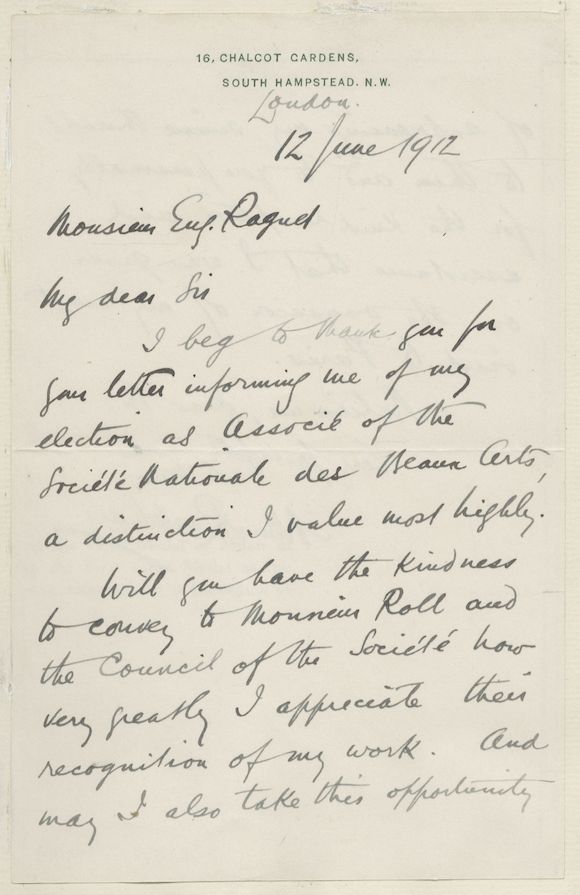 16, CHALCOT GARDENS,
SOUTH HAMPSTEAD. N.W.
London.
12 June 1912
Monsieur Eug. Raguet
My dear Sir
I beg to thank you for
your letter informing me of my
election as Associé of the
Société Nationale des Beaux Arts,
a distinction I value most highly.
Will you have the kindness
to convey to Monsieur Roll and
the Council of the Société how
very greatly I appreciate their
recognition of my work. And
may I also take this opportunity